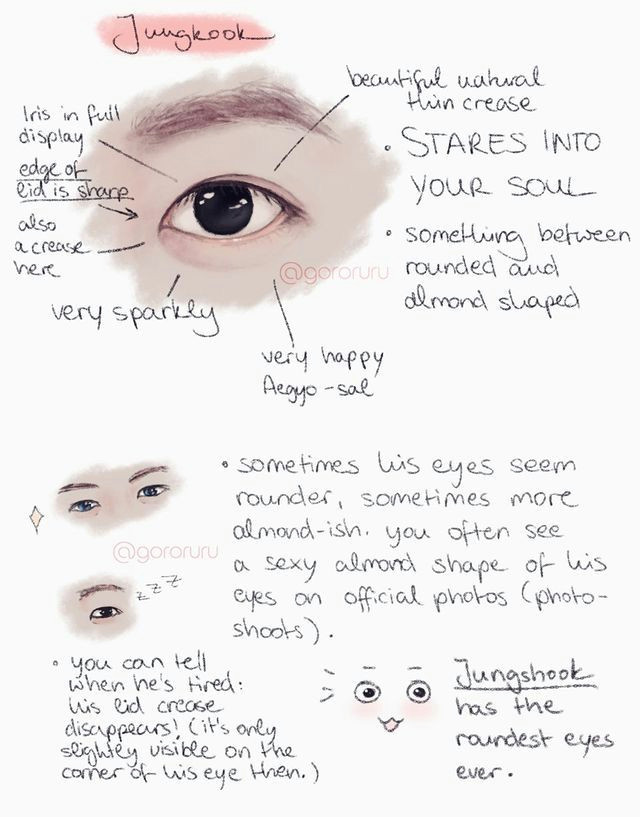 Jungkook
beautiful natural
thin crease
Iris in full
display
edge of
lid is sharp
also
a crease
here
very sparkly
very happy
Aegyo-sal
@gororuru
• STARES INTO
YOUR SOUL
• something between
rounded and
almond shaped
@gororuru
z z z
• sometimes his eyes seem
rounder, sometimes more
almond-ish. you often see
a sexy almond shape of his
eyes on official photos (photo-
shoots).
• you can tell
when he's tired:
his lid crease
disappears! (it's only
slightly visible on the
corner of his eye then.)
Jungshook
has the
roundest eyes
ever.